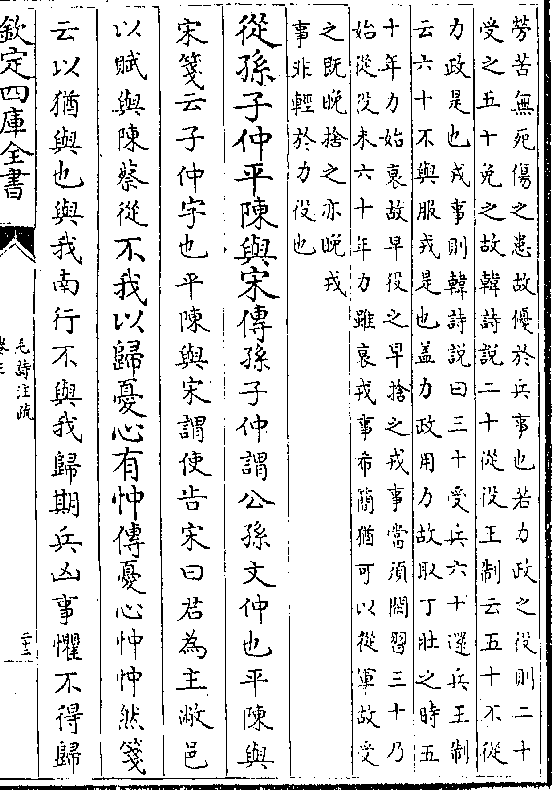 勞苦無死傷之患故優於兵事也若力政之役則二十
受之五十免之故韓詩說二十從役王制云五十不從
力政是也戎事則韓詩說曰三十受兵六十還兵王制
云六十不與服戎是也盖力政用力故取丁壯之時五
十年力始衰故早役之早捨之戎事當須閑習三十乃
始從役未六十年力雖衰戎事希簡猶可以從軍故受
之既晚捨之亦晚戎
事非輕於力役也
從孫子仲平陳與宋傳孫子仲謂公孫文仲也平陳與
宋箋云子仲字也平陳與宋謂使告宋曰君為主敝邑
以賦與陳蔡從不我以歸憂心有忡傳憂心忡忡然箋
云以猶與也與我南行不與我歸期兵凶事懼不得歸
欽定四庫全書
毛詩注疏
卷三
二十三